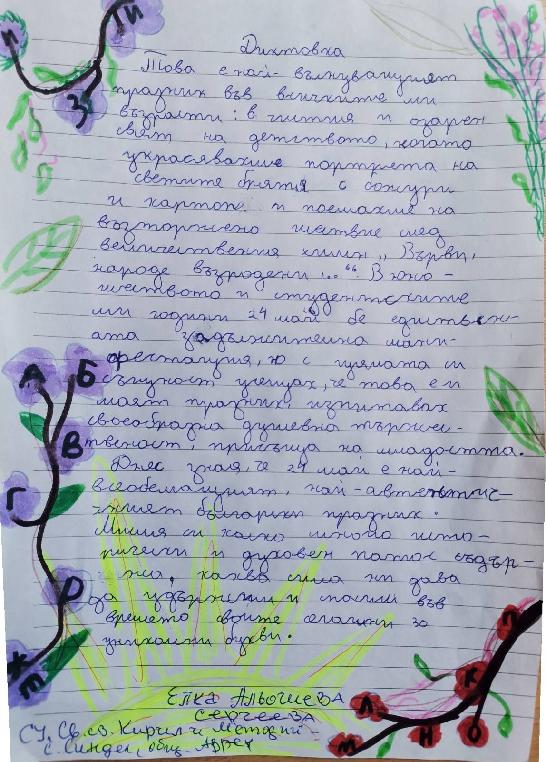 Диктовка
Това е най-вълнуващият
празник във всичките ми
възрасти: в чистия и озарен
свят на детството, когато
украсявахме портрета на
светите братя с божури
и картон и поемахме на
възторжено шествие след
величествения химн „Върви,
народе възродени..." В юно-
шеството и студентските
ми години 24 май бе единствен-
ата задължителна мани-
фестация, но с цялата си
същност усещах, че това е и
моят празник, изпитвах
своеобразна душевна тържес-
твеност, присъща на младостта.
Днес зная, че 24 май е най-
всеобемащият, най-автентич-
ният български празник.
Мисля си колко много исто-
рически и духовен патос съдър-
жа, каква сила ни дава
да удържим и спасим във
времето своите
уникални букви.
Елка Альошева
Сергеева
СУ „Св. св. Кирил и Методий"-
с. Синдел, общ. Аврен
И
Й
З
А
Б
В
Г
Д
Ж
Е
К
Л
М
Н
О
П